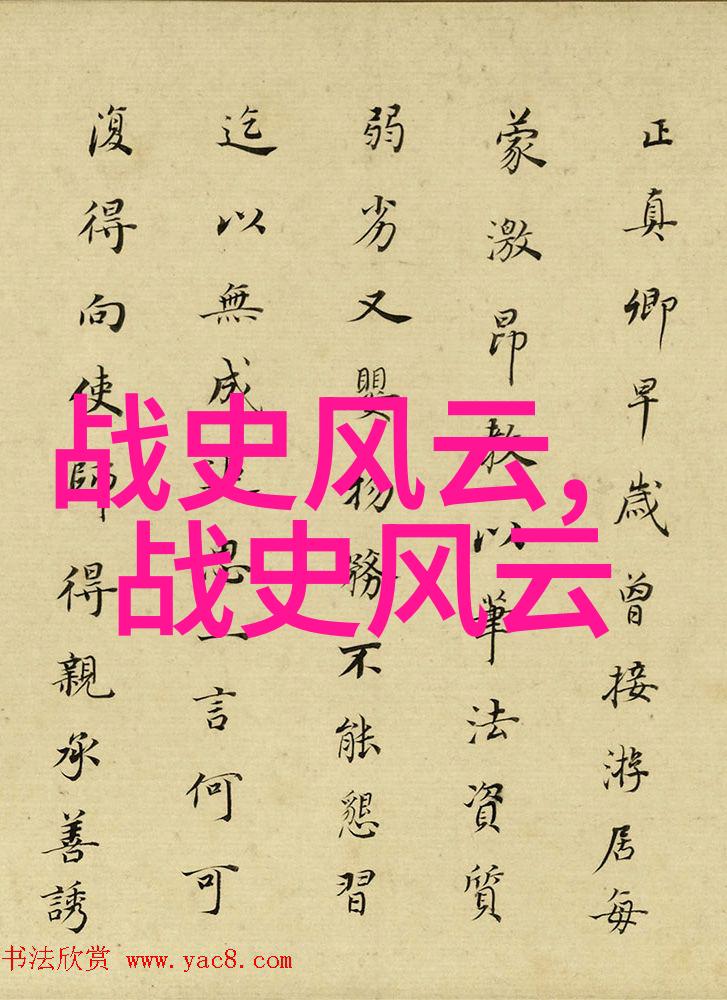 正真卿早歲曾接游居每
蒙激昂教以筆法資質
弱劣又嬰物務不能懇習
迄以無成追思一言何可
復得向使師得親承善誘
战史风云,
战史风云
书法欣赏 www.yac8.com